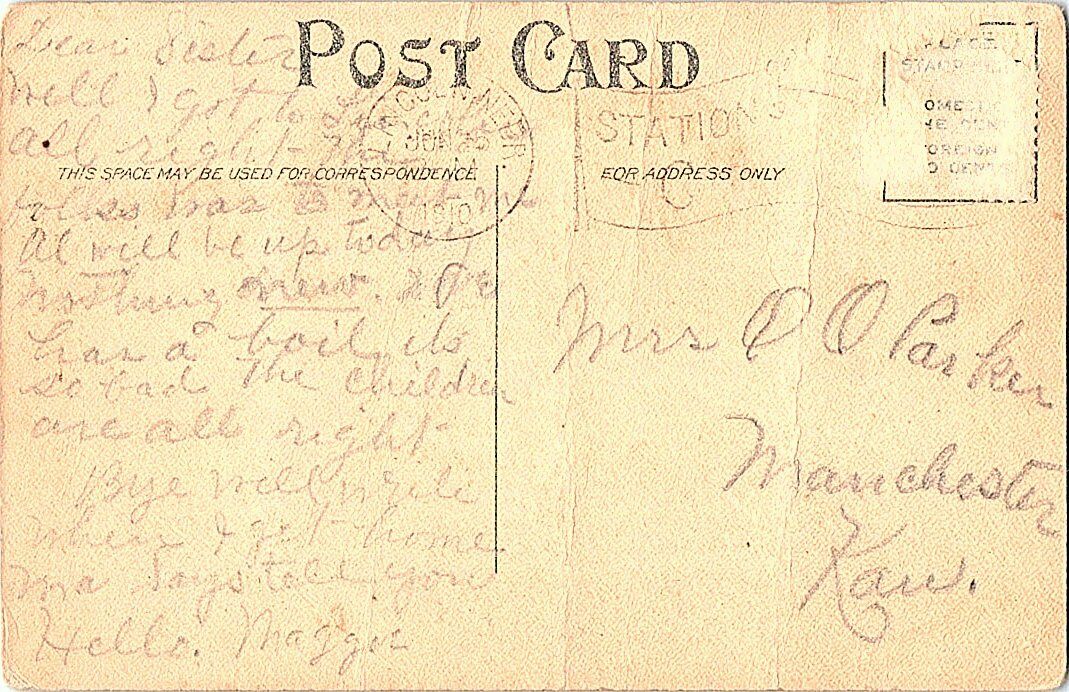 POST CARD
THIS SPACE MAY BE USED FOR CORRESPONDENCE
FOR ADDRESS ONLY
PLACE
STAMP
DOMESTIC
ONE CENT
FOREIGN
LINCOLN, NEBR
JUN
1910
STATION
C
Dear Sister
Well I got to
all right - the
folks was to meet me
Al will be up today
nothing new.
has a boil, its
so bad The children
are all right
Bye will write
when I get home
Ma says tell you
Hello. Maggie
Mrs O O Parker
Manchester
Kan.